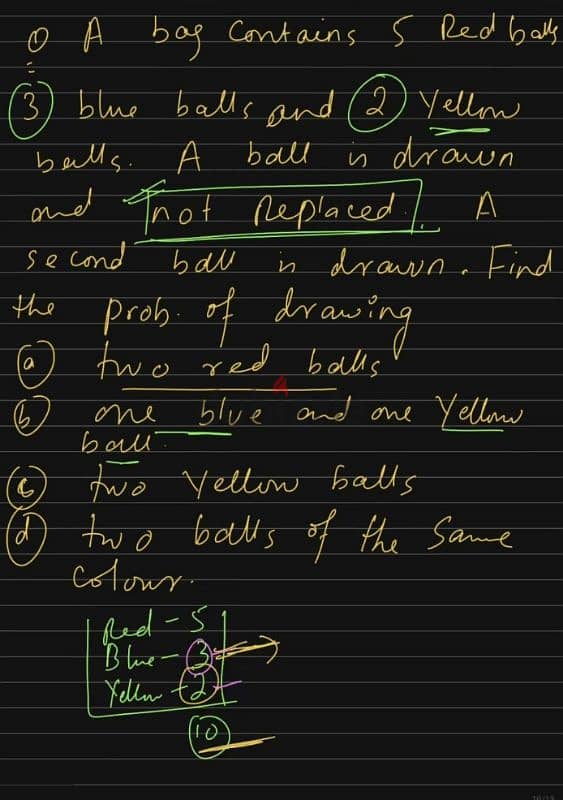 ① A bag Contains 5 Red balls
3 blue balls and 2 Yellow
balls. A ball is drawn
and not Replaced. A
second ball is drawn. Find
the prob. of drawing
(a) two red balls
(b) one blue and one Yellow
ball.
(c) two Yellow balls
(d) two balls of the same
colour.
Red - 5
Blue - 3
Yellow - 2
10